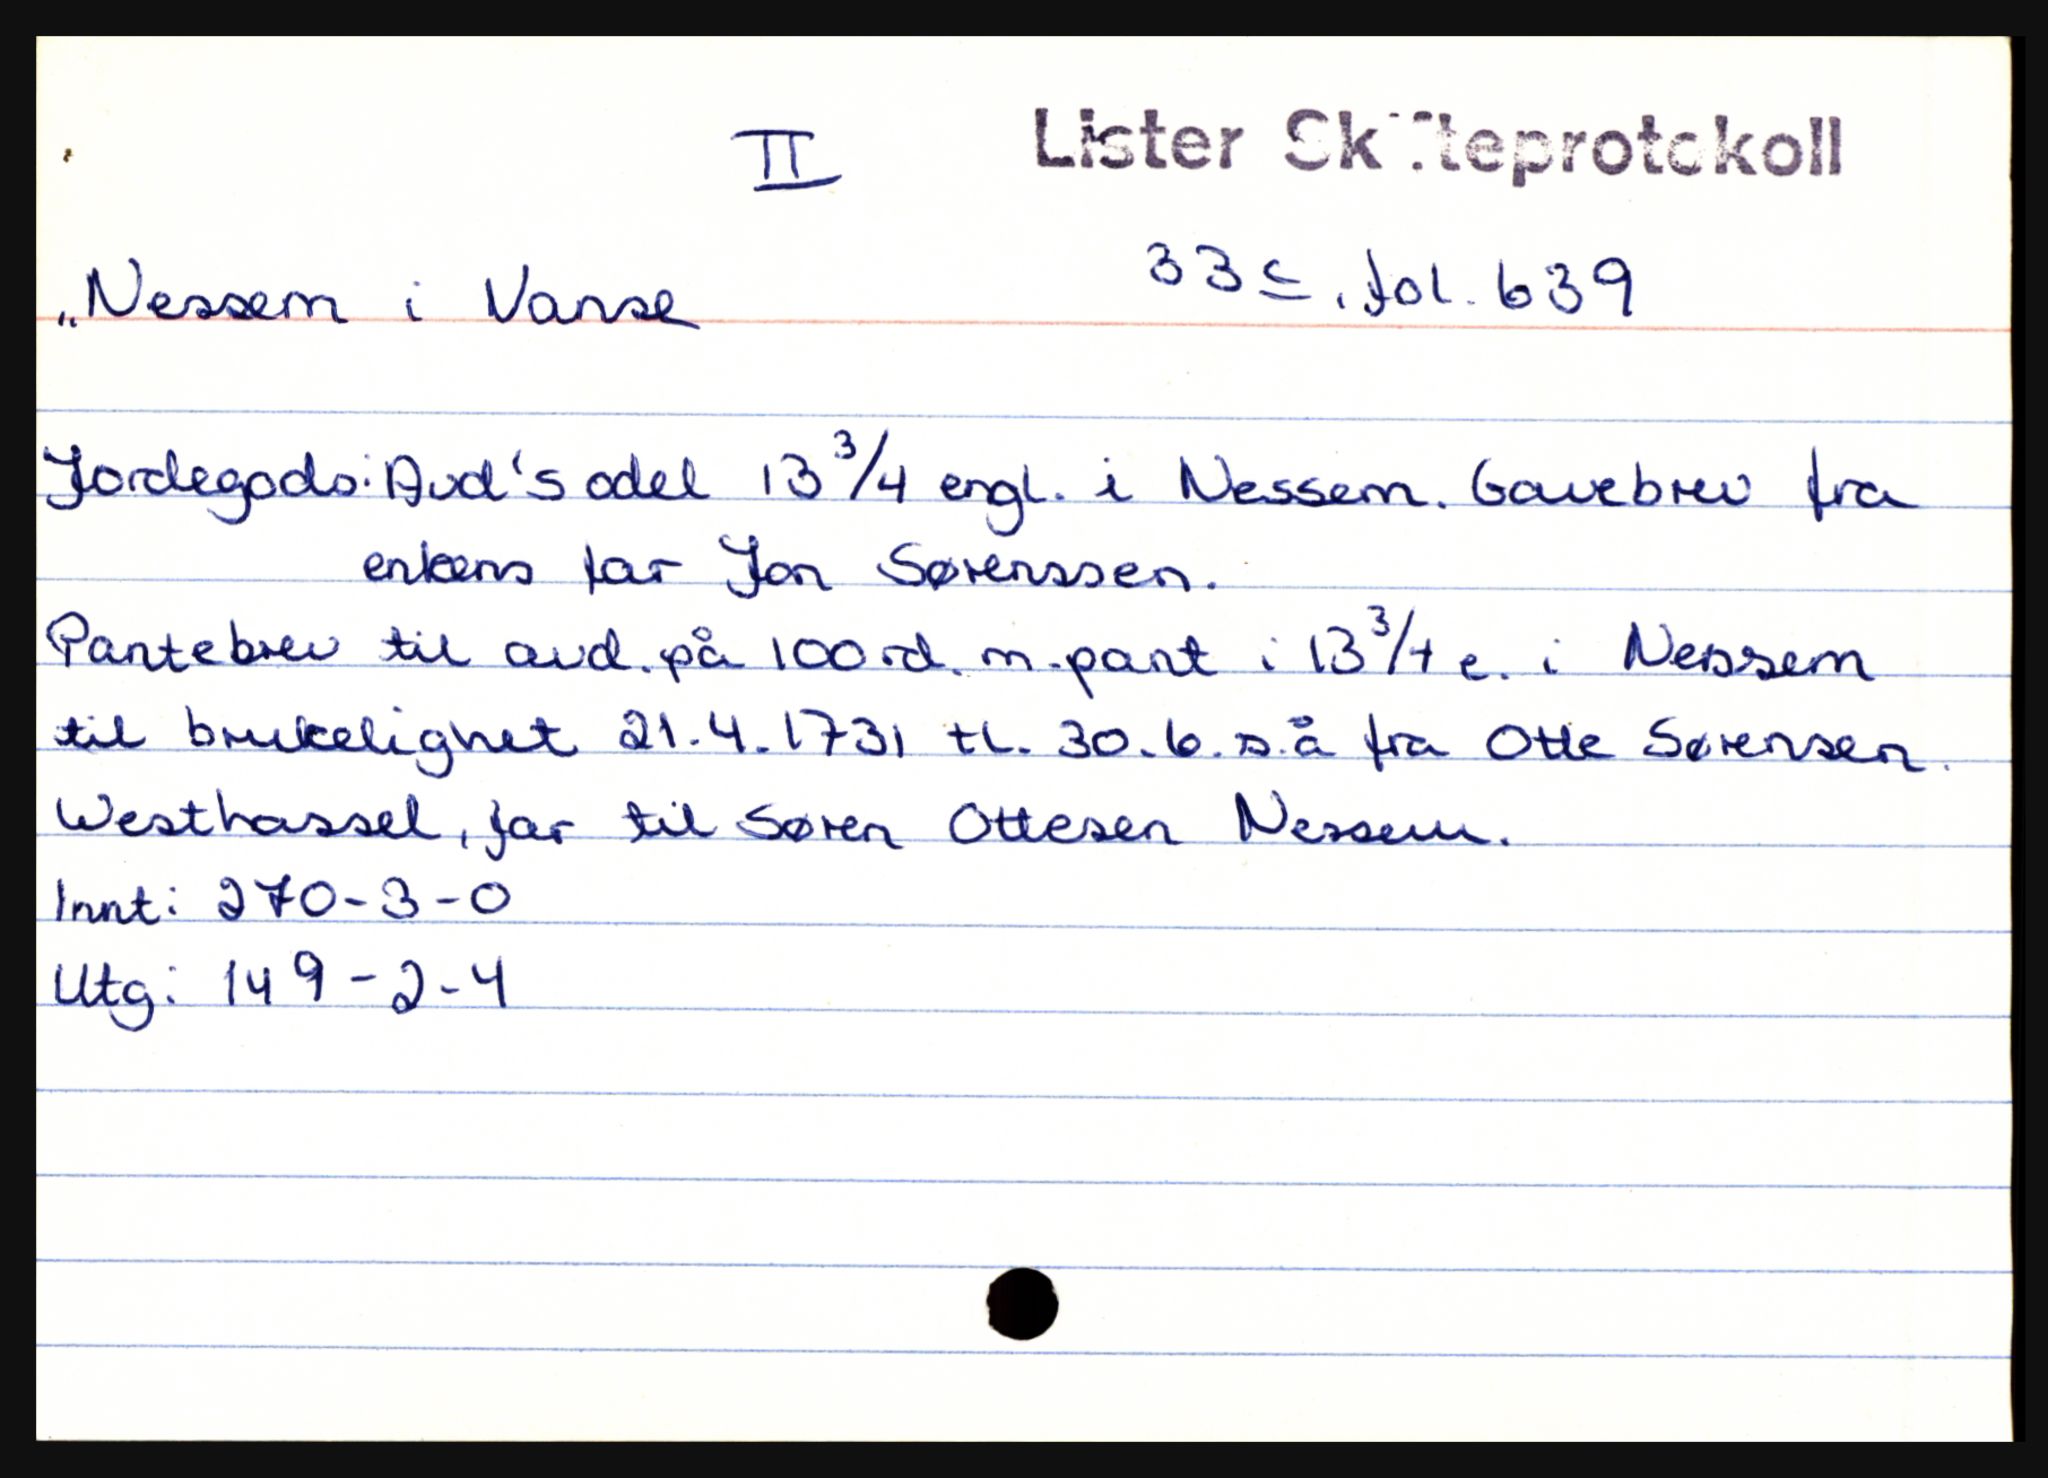 II
Lister Skifteprotokoll
„Nessem i Vanse
33c, fol. 639
Jordegods: Avd's odel 13 3/4 engl. i Nessem. Gavebrev fra
enkens far Jon Sørenssen.
Pantebrev til avd. på 100 rd. m. pant i 13 3/4 e. i Nessem
til brukelighet 21.4.1731 tl. 30.6. s.å fra Otte Sørensen.
Westhassel, far til Søren Ottesen Nessem.
Innt: 270-3-0
Utg: 149-2-4